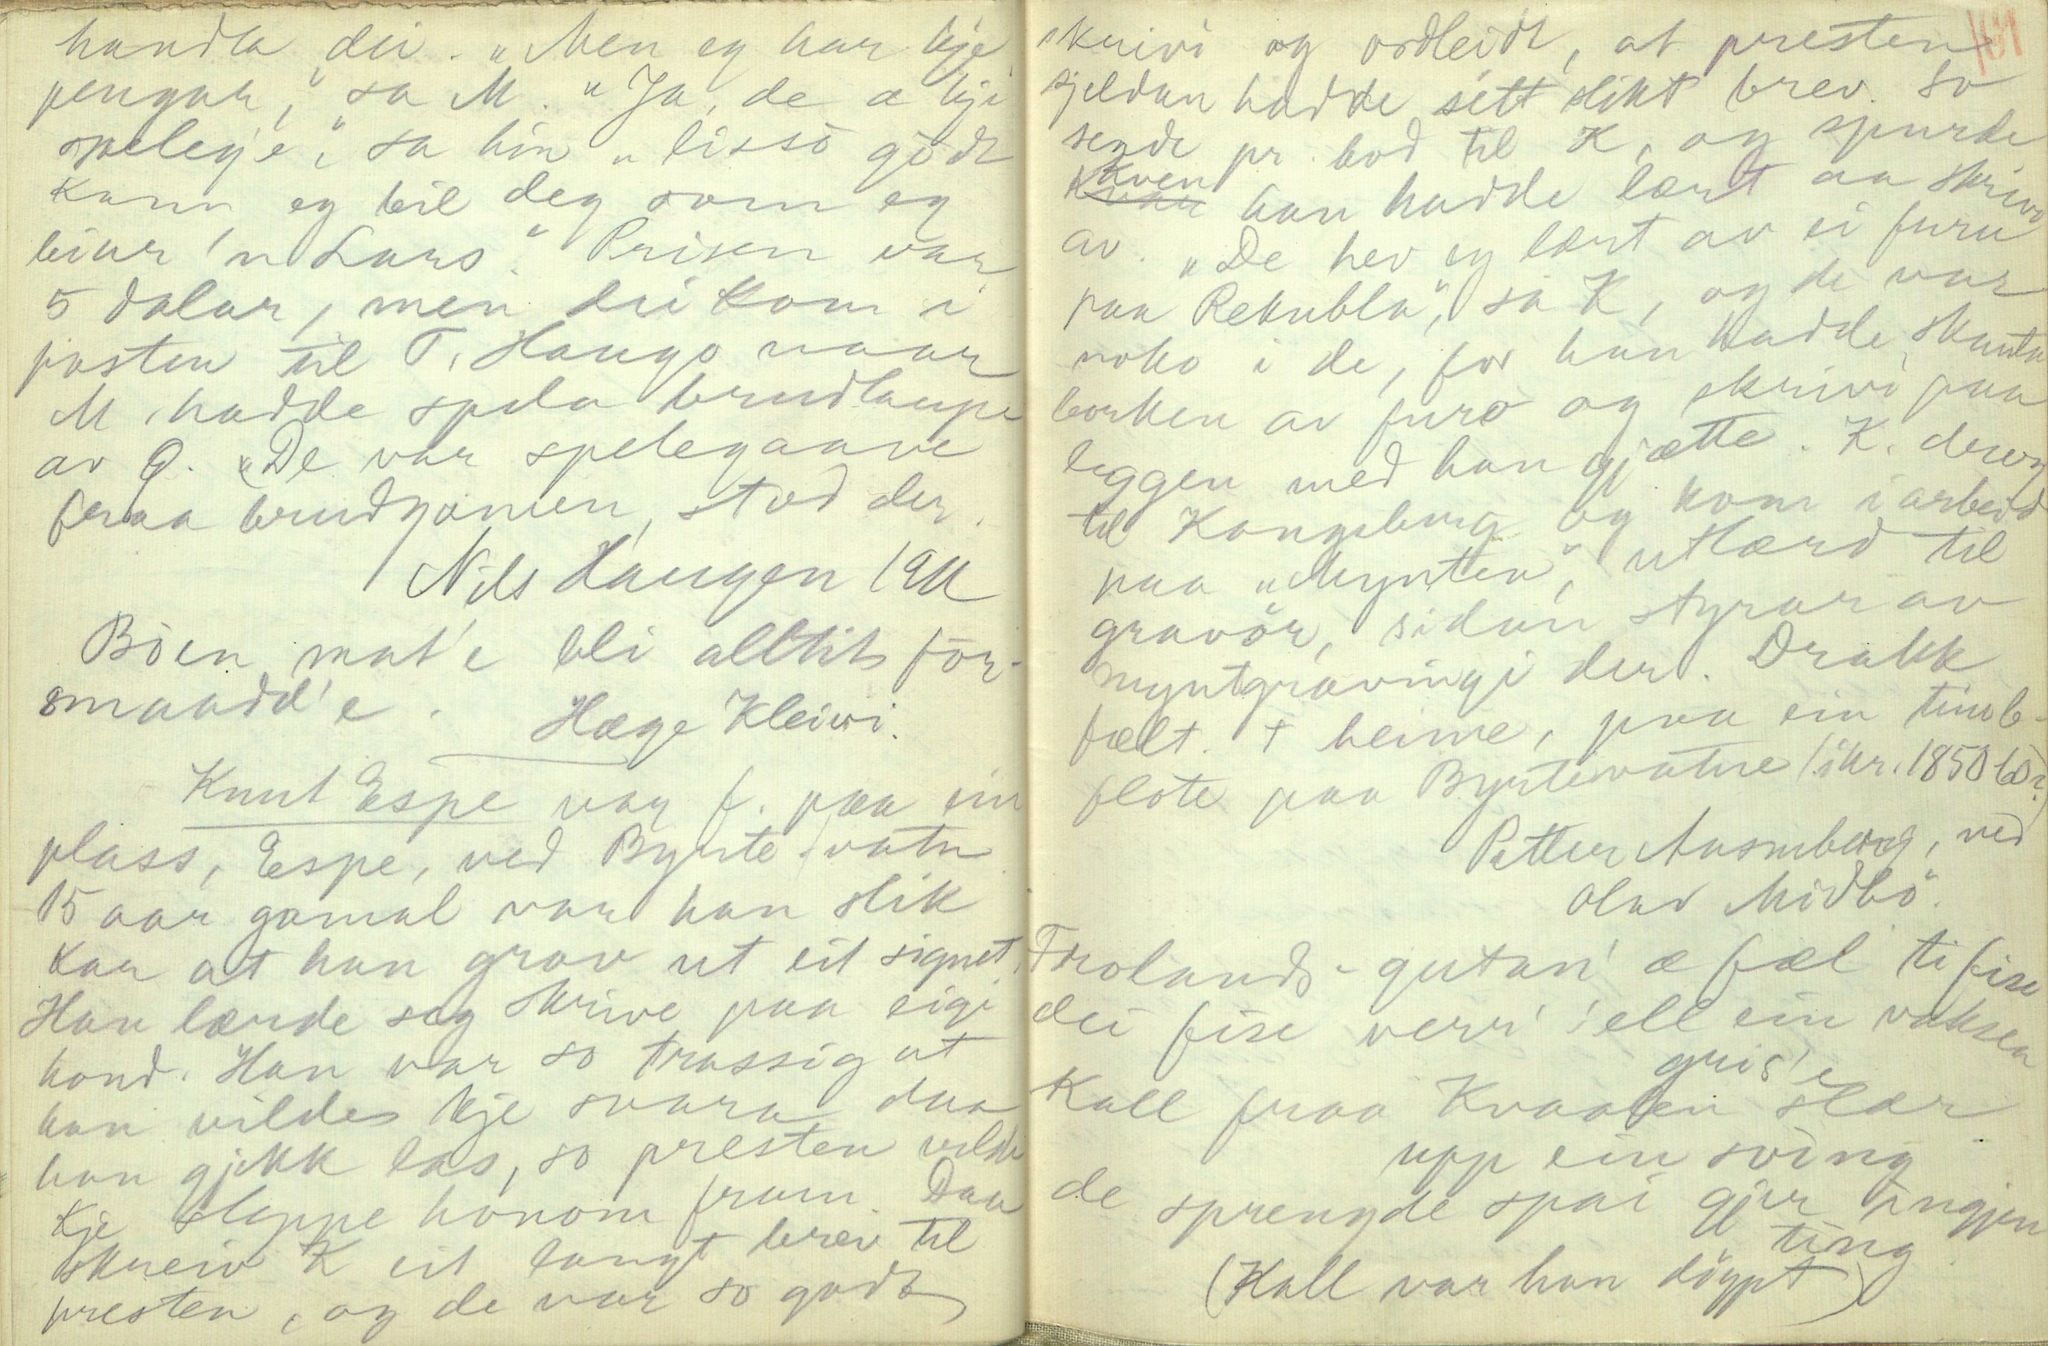 handla dei. „Men eg har kje
pengar,“ sa M. „Ja, de æ kje
spelegé“, sa hin „lissò godt
kann eg bil deg som eg
biur 'n Lars.“ Prisen var
5 dalar, men dei kom i
posten til T. Haugo naar
M. hadde spela brudlaupe
av G. „De var spelegaave
fraa brudgomen, stod der.
Nils Haugen 1911
Böen mat'e bli alltit for-
smaadd'e.
Hæge Kleivi.
Knut Espe var f. paa ein
plass, Espe, ved Byrte-vatn
15 aar gamal var han slik
kar at han grov ut eit signet.
Han lærde seg skrive paa eigi
hond. Han var so trassig at
han vilde kje svara daa
han gjekk las, so presten vilde
kje sleppe honom fram. Daa
skreiv K eit langt brev til
presten, og de var so godt
101
skrivi og ordleidt, at presten
sjeldan hadde sétt slikt brev. So
sende pr. bod til K, og spurde
Kven
han hadde lært aa skriva
av. „De hev eg lært av ei furu
paa Rekubla“, sa K, og de var
noko i de, for han hadde skanta
borken av furo og skrivi paa
leggen med han gjætte. K. derog
til Kongsberg og kom i arbeid
paa „Mynten“, utlærd til
gravör, sidan styrar av
myntgravingi der. Drakk
fælt. † heime, paa ein timb-
flote paa Byrtevatne (ikr. 1850-60?)
Petter Aasmberg, ved
Olav Midbö.
Trolands-gutan' æ fæl ti fise
dei fise verr' 'ell ein vaksen
gris'e
Kall fraa Kvaalen slær
upp ein sving
de sprengde spai gjer ingjen
ting
(Kall var han döypt)